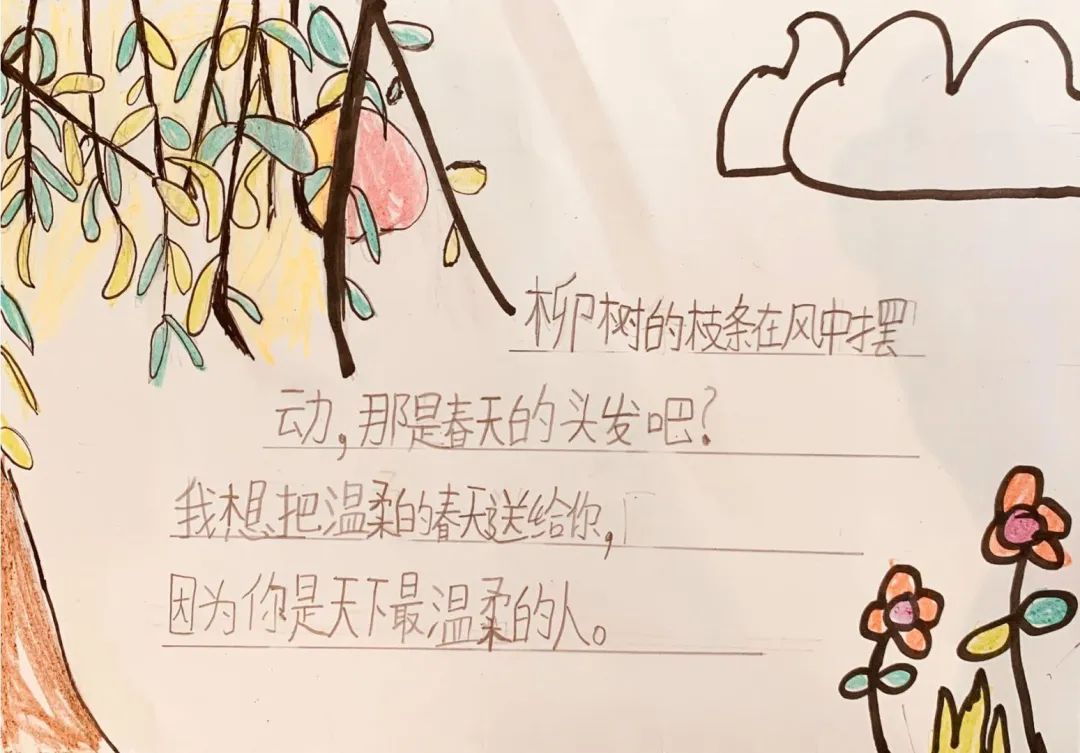 柳树的枝条在风中摆
动，那是春天的头发吧？
我想把温柔的春天送给你，
因为你是天下最温柔的人。